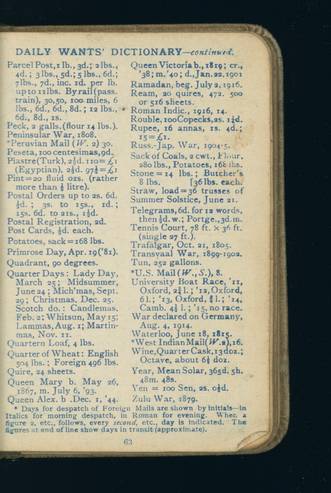 DAILY WANTS' DICTIONARY—continued.
Parcel Post, 1 lb., 3d.; 2 lbs.,
4d.; 3 lbs., 5d.; 5 lbs., 6d.;
7 lbs., 7d., inc. 1d. per lb.
up to 11 lbs. By rail (pass.
train), 30, 50, 100 miles, 6
lbs., 6d., 6d., 8d.; 12 lbs.,
6d., 8d., 1s.
Peck, 2 galls. (flour 14 lbs.).
Peninsular War, 1808.
*Peruvian Mail (W. 2) 30.
Peseta, 100 centesimas, 9d.
Piastre (Turk), 2½d. 110=£1
(Egyptian), 2½d. 97½=£1
Pint=20 fluid ozs. (rather
more than ½ litre).
Postal Orders up to 2s. 6d.
½d.; 3s. to 15s., 1d.;
15s. 6d. to 21s., 1½d.
Postal Registration, 2d.
Post Cards, ½d. each.
Potatoes, sack=168 lbs.
Primrose Day, Apr. 19 ('81).
Quadrant, 90 degrees.
Quarter Days: Lady Day,
March 25; Midsummer,
June 24; Mich'mas, Sept.
29; Christmas, Dec. 25.
Scotch do.: Candlemas,
Feb. 2; Whitsun, May 15;
Lammas, Aug. 1; Martin-
mas, Nov. 11.
Quartern Loaf, 4 lbs.
Quarter of Wheat: English
504 lbs.; Foreign 496 lbs.
Quire, 24 sheets.
Queen Mary b. May 26,
1867, m. July 6, '93.
Queen Alex. b. Dec. 1, '44.
Queen Victoria b., 1819; cr.,
'38; m. '40; d., Jan. 22, 1901
Ramadan, beg. July 2, 1916.
Ream, 20 quires, 472, 500
or 516 sheets.
*Roman Indic., 1916, 14.
Rouble, 100 Copecks, 2s. 1½d.
Rupee, 16 annas, 1s. 4d.;
15=£1.
Russ.-Jap. War, 1904-5.
Sack of Coals, 2 cwt., Flour,
280 lbs., Potatoes, 168 lbs.
Stone=14 lbs.; Butcher's
8 lbs. [36 lbs. each.
Straw, load=36 trusses of
Summer Solstice, June 21.
Telegrams, 6d. for 12 words,
then ½d. w.; Portge., 3d. m.
Tennis Court, 78 ft. × 36 ft.
(single 27 ft.).
Trafalgar, Oct. 21, 1805.
Transvaal War, 1899-1902.
Tun, 252 gallons.
*U.S. Mail (W., S.), 8.
University Boat Race, '11,
Oxford, 2¾ l.; '12, Oxford,
6 l.; '13, Oxford, ¾ l.; '14,
Camb. 4½ l.; '15, no race.
War declared on Germany,
Aug. 4, 1914.
Waterloo, June 18, 1815.
*West Indian Mail (W. 2), 16.
Wine, Quarter Cask, 13 doz.;
Octave, about 6½ doz.
Year, Mean Solar, 365d. 5h.
48m. 48s.
Yen = 100 Sen, 2s. 0½d.
Zulu War, 1879.
* Days for despatch of Foreign Mails are shown by initials—in
Italics for morning despatch, in Roman for evening. When a
figure 2, etc., follows, every second, etc., day is indicated. The
figures at end of line show days in transit (approximate).
63